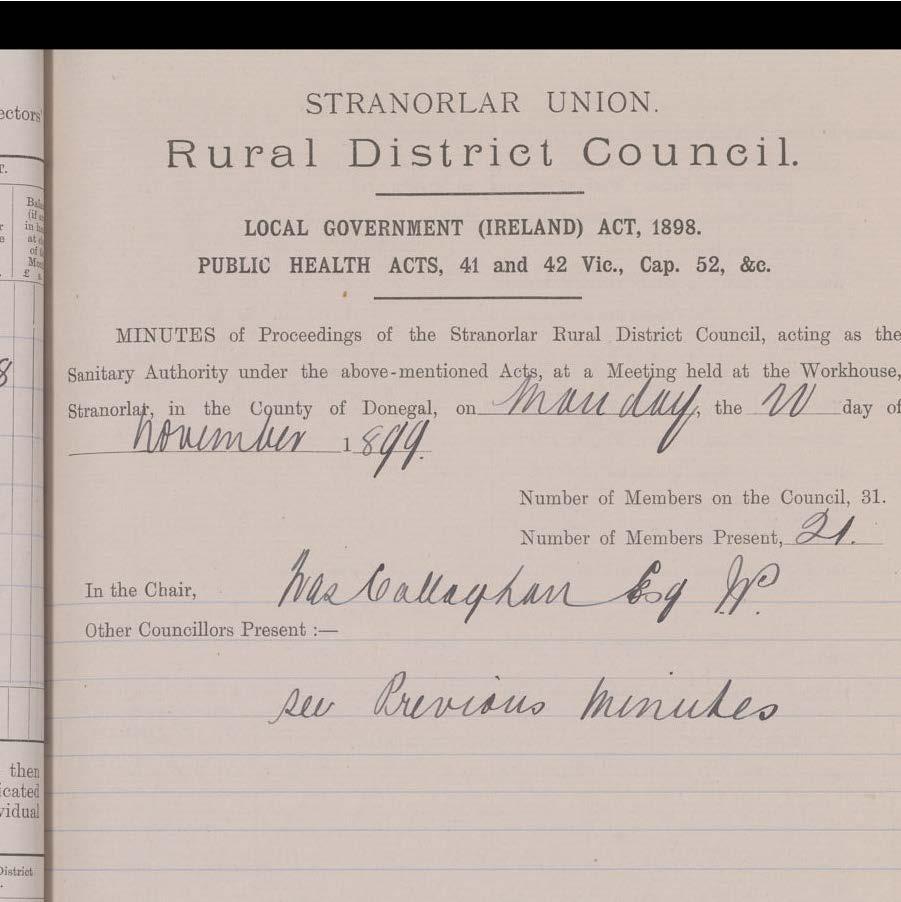 ectors'
T.
in h
at
of
£ s.
8
then
icated
vidual
District
STRANORLAR UNION.
Rural District Council.
LOCAL GOVERNMENT (IRELAND) ACT, 1898.
PUBLIC HEALTH ACTS, 41 and 42 Vic., Cap. 52, &c.
MINUTES of Proceedings of the Stranorlar Rural District Council, acting as the
Sanitary Authority under the above-mentioned Acts, at a Meeting held at the Workhouse,
Stranorlar, in the County of Donegal, on Monday, the 20 day of
November 1899.
Number of Members on the Council, 31.
Number of Members Present, 21.
In the Chair, Callaghan Esq JP.
Other Councillors Present :—
see Previous Minutes